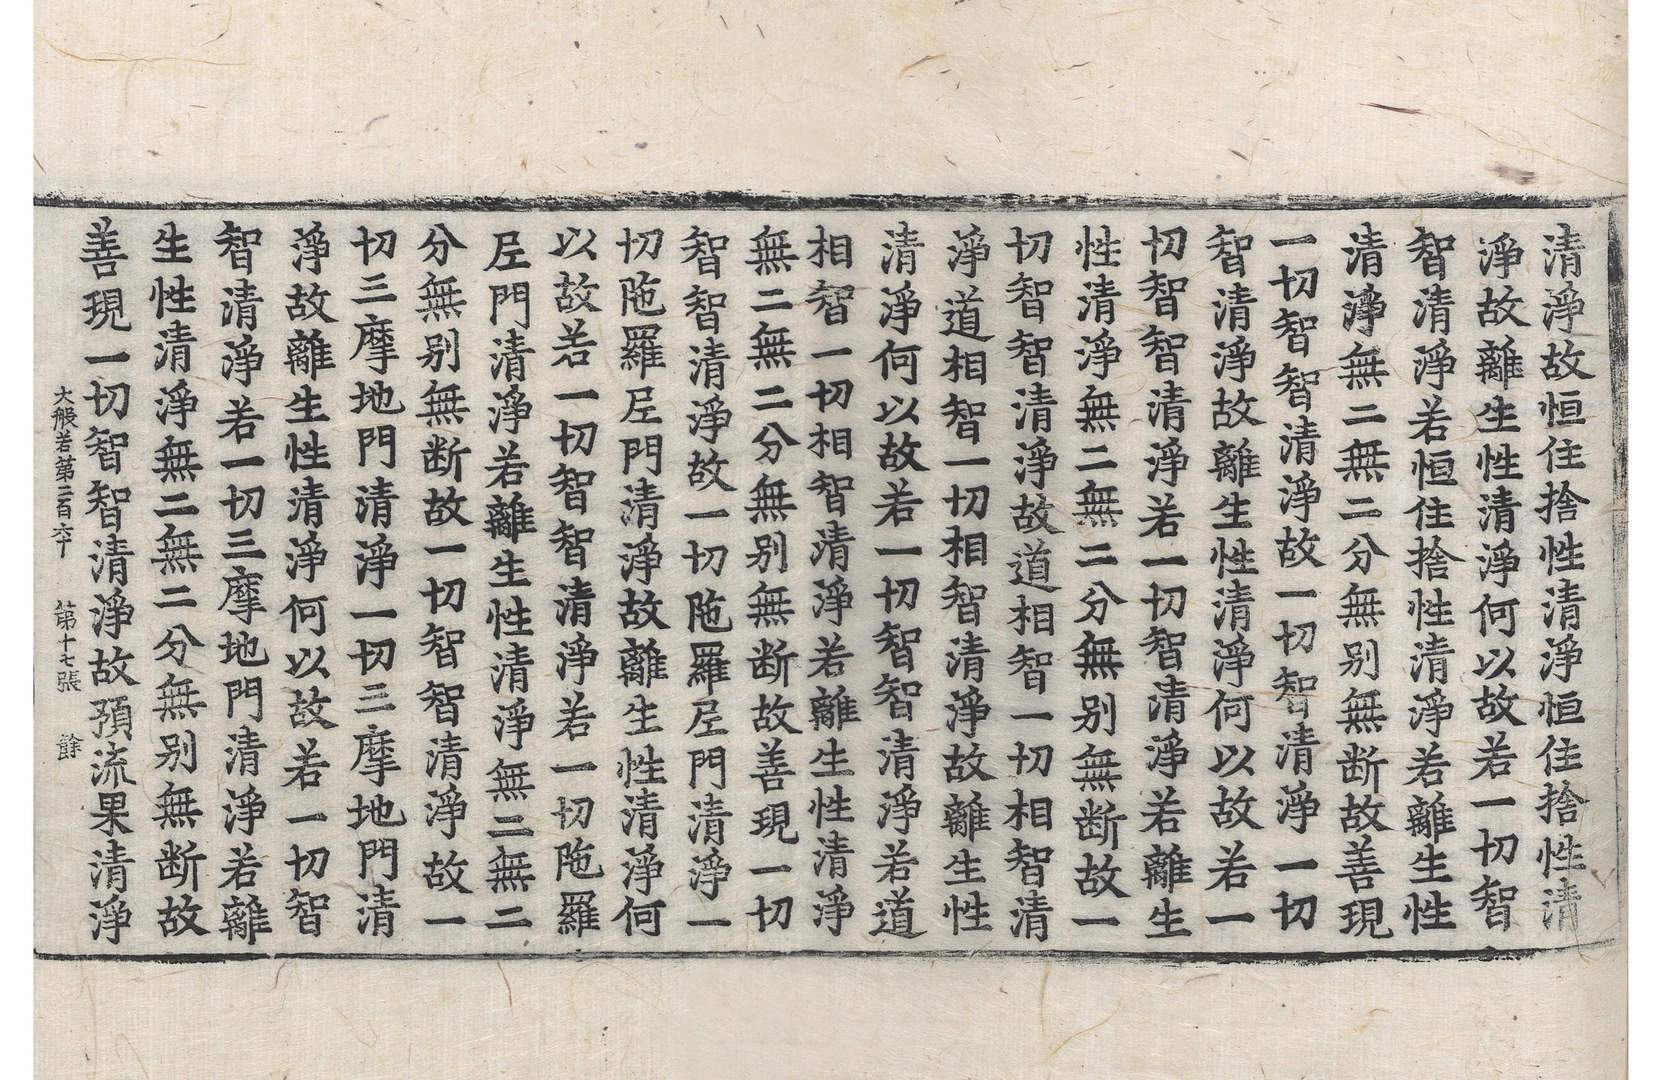 清淨故恒住捨性清淨恒住捨性清
淨故離生性清淨何以故若一切智
智清淨若恒住捨性清淨若離生性
清淨無二無二分無别無断故善現
一切智智清淨故一切智清淨一切
智清淨故離生性清淨何以故若一
切智智清淨若一切智清淨若離生
性清淨無二無二分無别無断故一
切智智清淨故道相智一切相智清
淨道相智一切相智清淨故離生性
清淨何以故若一切智智清淨若道
相智一切相智清淨若離生性清淨
無二無二分無别無断故善現一切
智智清淨故一切陁羅尼門清淨一
切陁羅尼門清淨故離生性清淨何
以故若一切智智清淨若一切陁羅
尼門清淨若離生性清淨無二無二
分無别無断故一切智智清淨故一
切三摩地門清淨一切三摩地門清
淨故離生性清淨何以故若一切智
智清淨若一切三摩地門清淨若離
生性清淨無二無二分無别無断故
善現一切智智清淨故預流果清淨
大般若第二百六十 第十七張 餘